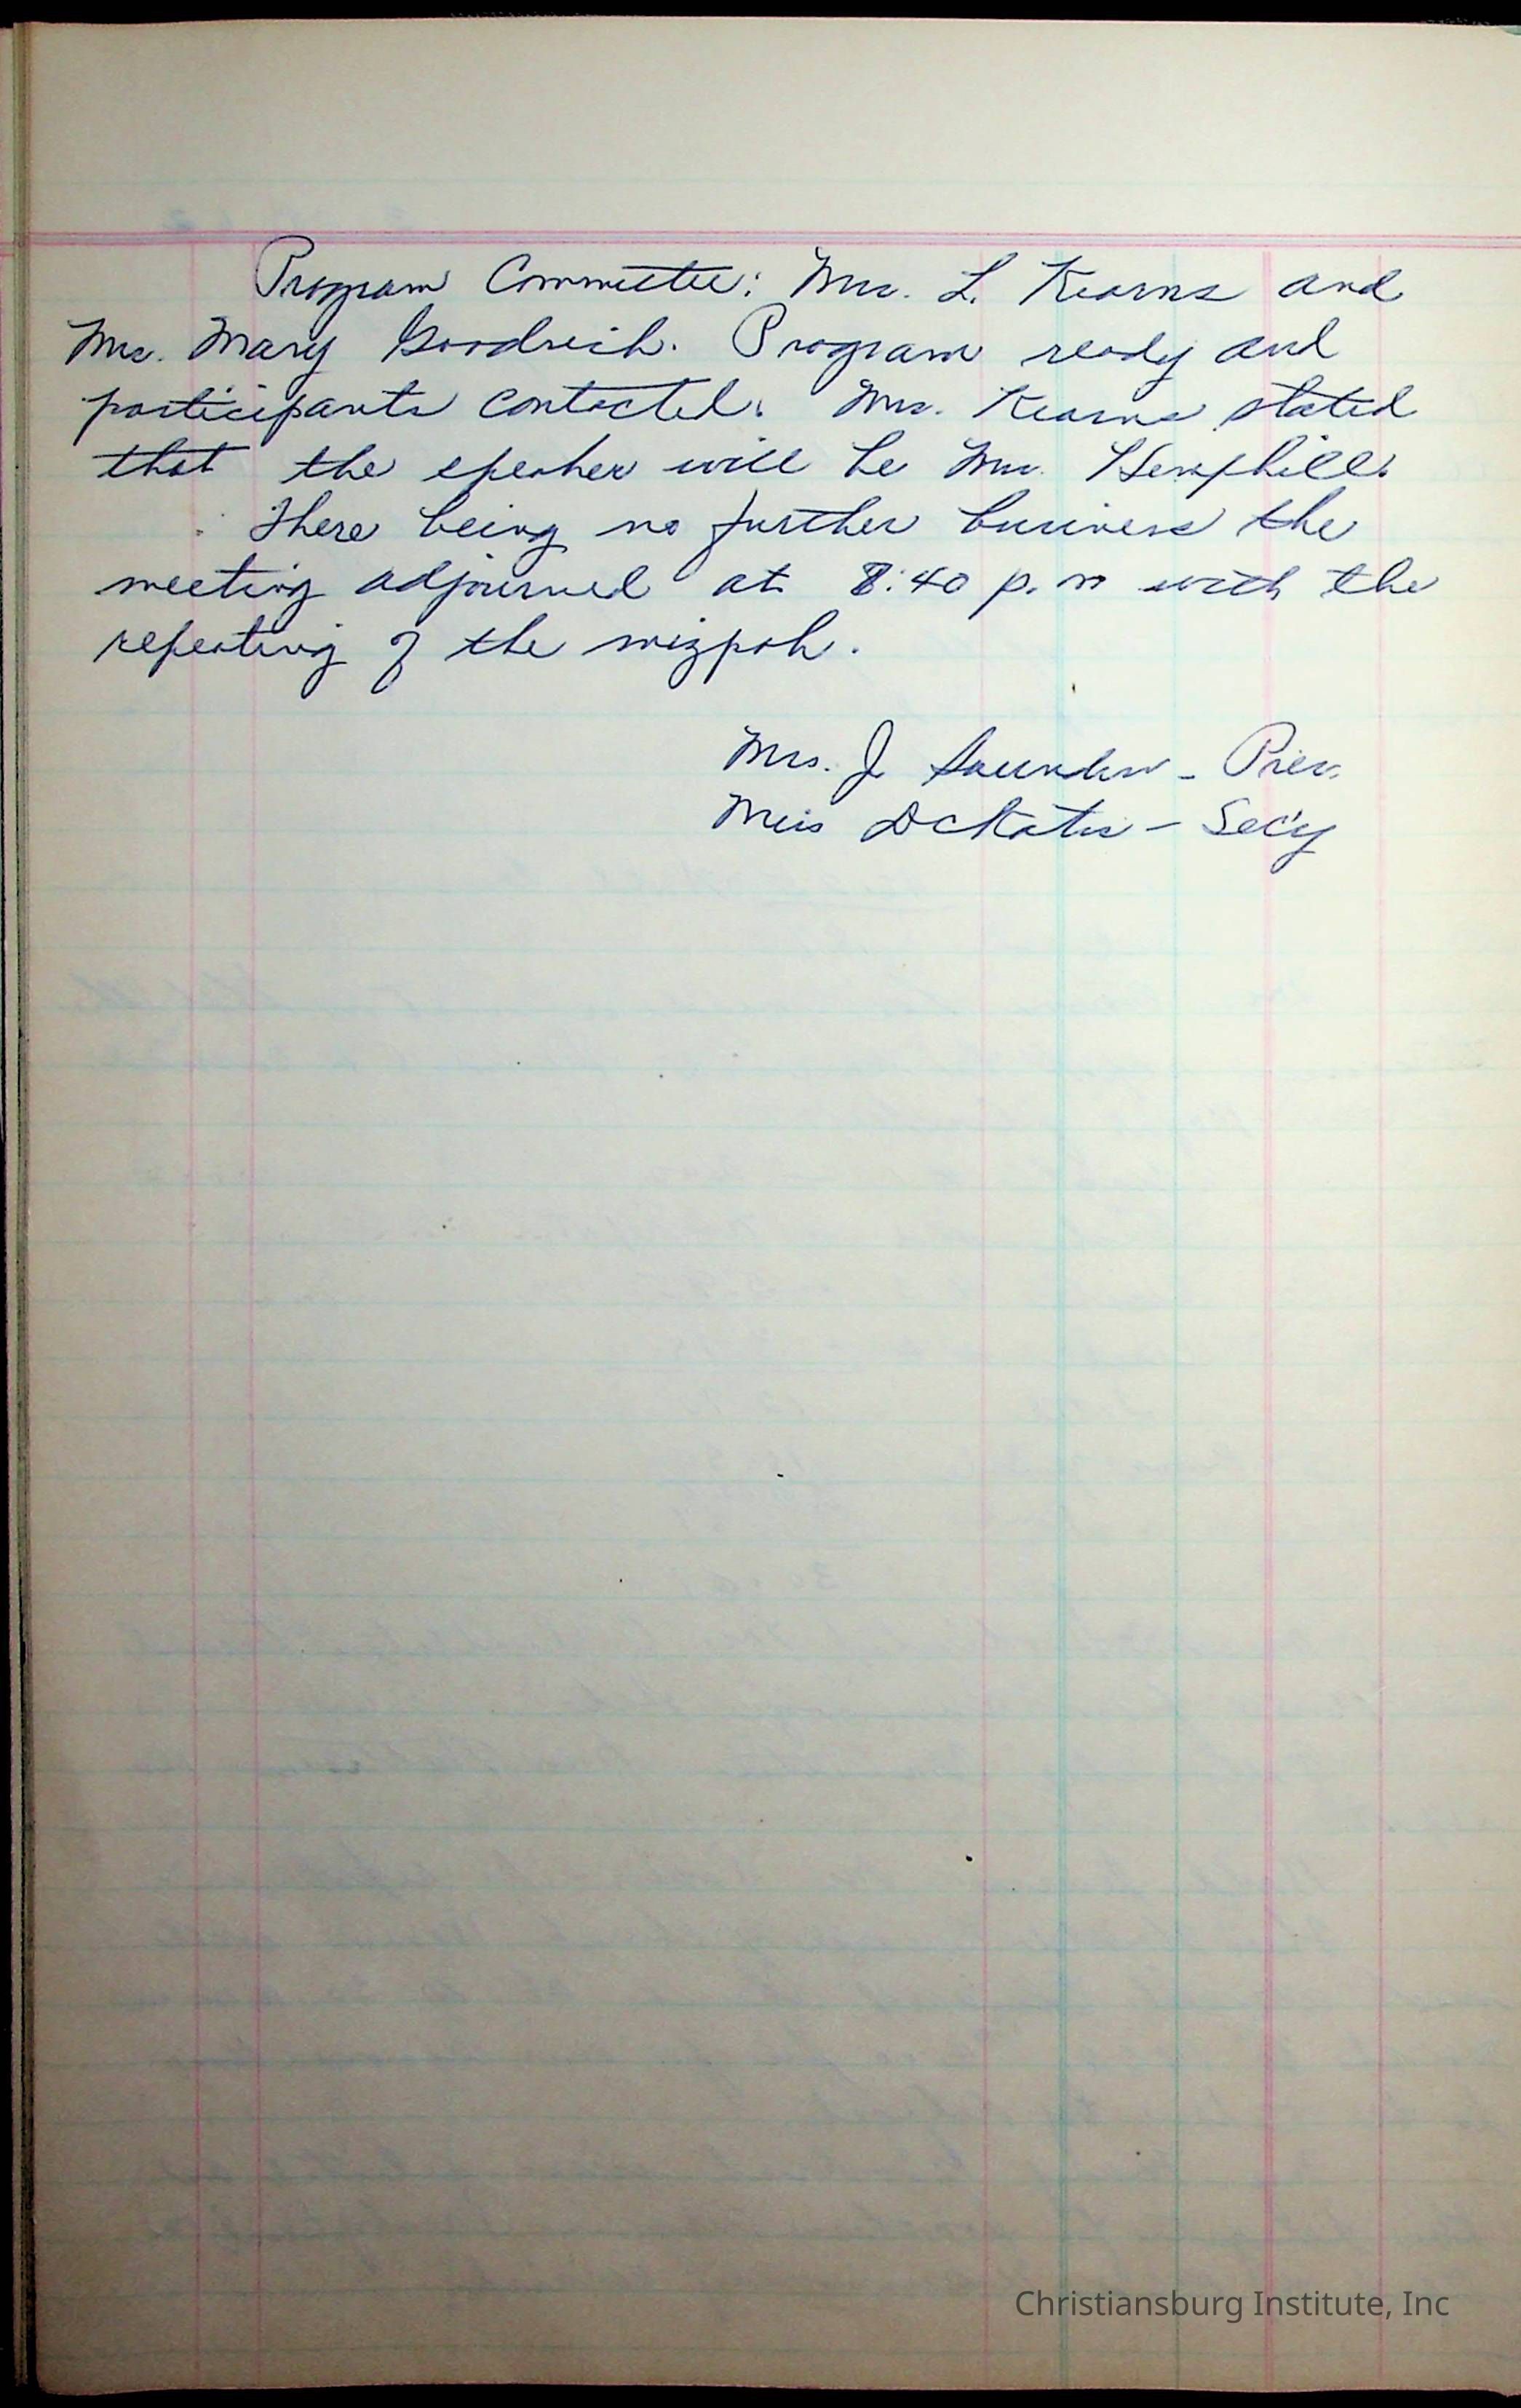 Program Committee: Mrs. L. Kearns and
Mrs. Mary Goodrich. Program ready and
participants contacted. Mrs. Kearns stated
that the speaker will be Mrs. Hemphill.
There being no further business the
meeting adjourned at 8:40 p.m with the
repeating of the mizpah.
Mrs. J Saunders - Pres.
Miss D - Sec'y
Christiansburg Institute, Inc